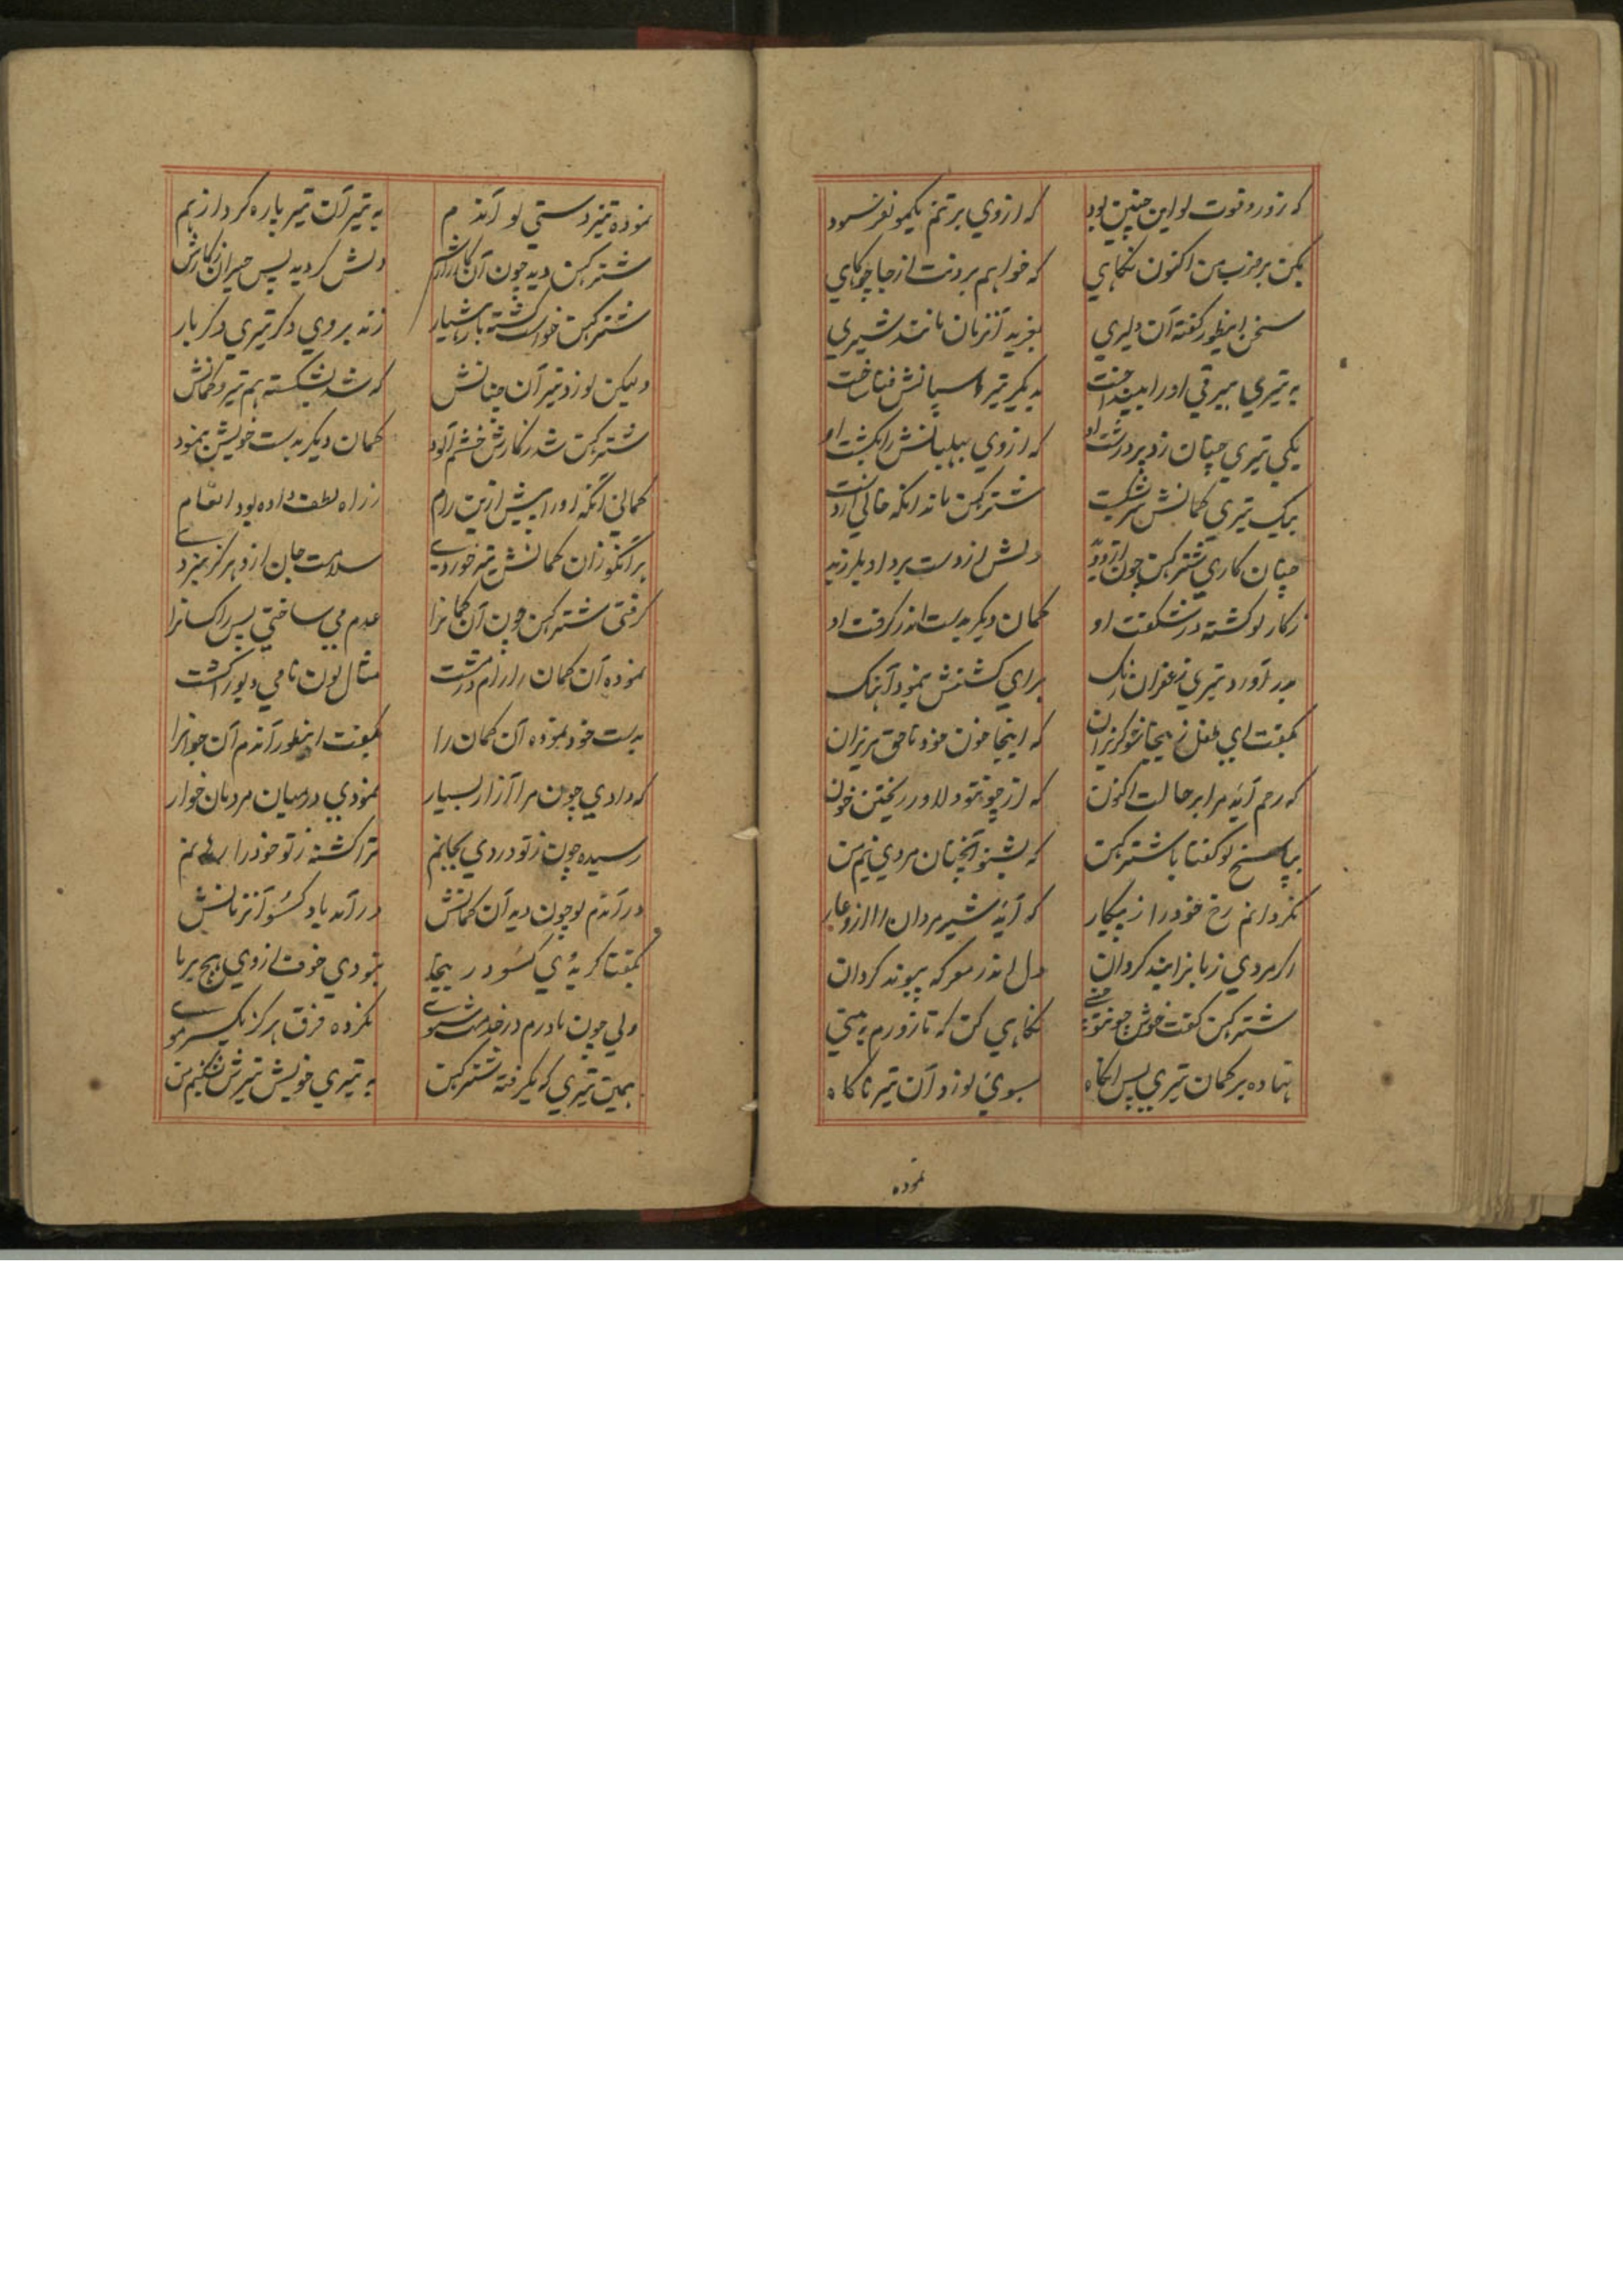 که زور و قوت لو این چنین بود که از وی بر تنم یکمو نفرسود
بکن بر ضرب من اکنون نکاهی که خواهم بردنت از جا چو کاهی
سخن اینطور کفته آن دلیری بغرید آنزمان مانند شیری
به تیری بیرقی او را بینداخت به دیکر تیر اسپانش فنا ساخت
یکی تیری چنان زد پر درشت او که از وی بهلبانش را بکشت او
بیک تیری کمانش شترکهن ماند آنکه خالی از دست
چنان کاری شترکهن چون ازو دید دلش از دست برد او بلرزید
ز کار لو کشته در شکفت او کمان دیکر بدست اندر کرفت او
بدر آورد تیری زعفران رنک برای کشتنش نمود آهنک
بکفت ای طفل ز پنجا شو کریزان که اینجا خون خود ناحق مریزان
که رحم آید مرا بر حالت اکنون که از چون تو دلاور ریختن خون
بپاسخ لو کفتا با شترکهن که بشنو آنچنان مردی نیم من
نکردانم رخ خود را ز پیکار که آید شیر مردان را ازو عار
اکر مردی زبانرا بند کردان دل اندر معرکه پیوند کردان
شترکهن کفت خوش چون تو نکاهی کن که تا زورم به بینی
نهاده بر کمان تیری پس آنکاه بسوی لو زد آن تیر ناکاه
نموده
نموده تیز دستی لو آندم به تیر آن تیر پاره کرد از هم
شترکهن دید چون آن کارزارش دلش کردید پس حیران ز کارش
شترکهن خواست کشته باز هشیار زند بر وی دکر تیری دکر بار
ولیکن لو زد تیر آن چنانش که شد بشکسته هم تیر و کمانش
شترکهن شد ز کارش خشم آلود کمان دیکر بدست خویش بنمود
کمانی آنکه او را پیش ازین رام ز راه لطف داده بود انعام
بر آنکو زان کمانش تیر خوردی سلامت جان ازو هرکز نبردی
کرفتی شترکهن چون آن کمانرا عدم می ساختی پس کسانرا
نموده آن کمان را رام در مشت مثال لون نامی دیو را کشت
بدست خود نموده آن کمان را بکفت اینطور آندم آن جوانرا
که دادی چون مرا آزار بسیار نمودی در میان مردمان خوار
رسیده چون ز تو دردی بجانم ترا کشته ز تو خود را رهانم
در آندم لو چون دید آن کمانش در آمد یاد کسو آنزمانش
بکفتا کر بدی کسو در ینجا نبودی خوف از وی هیچ بر ما
ولی چون مادرم در خدمت شوی نکرده فرق هرکز یک سر موی
همین تیری که بکرفته شترکهن به تیری خویش تیرش بشکنم من